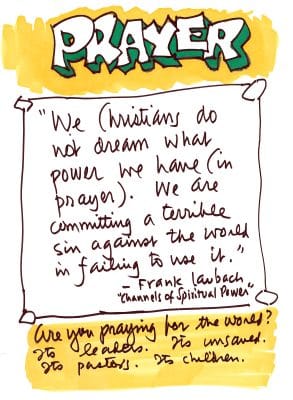 PRAYER
"We Christians do
not dream what
power we have (in
prayer). We are
committing a terrible
sin against the world
in failing to use it."
- Frank Laubach
"Channels of Spiritual Power"
Are you praying for the world?
Its leaders. Its unsaved.
Its pastors. Its children.